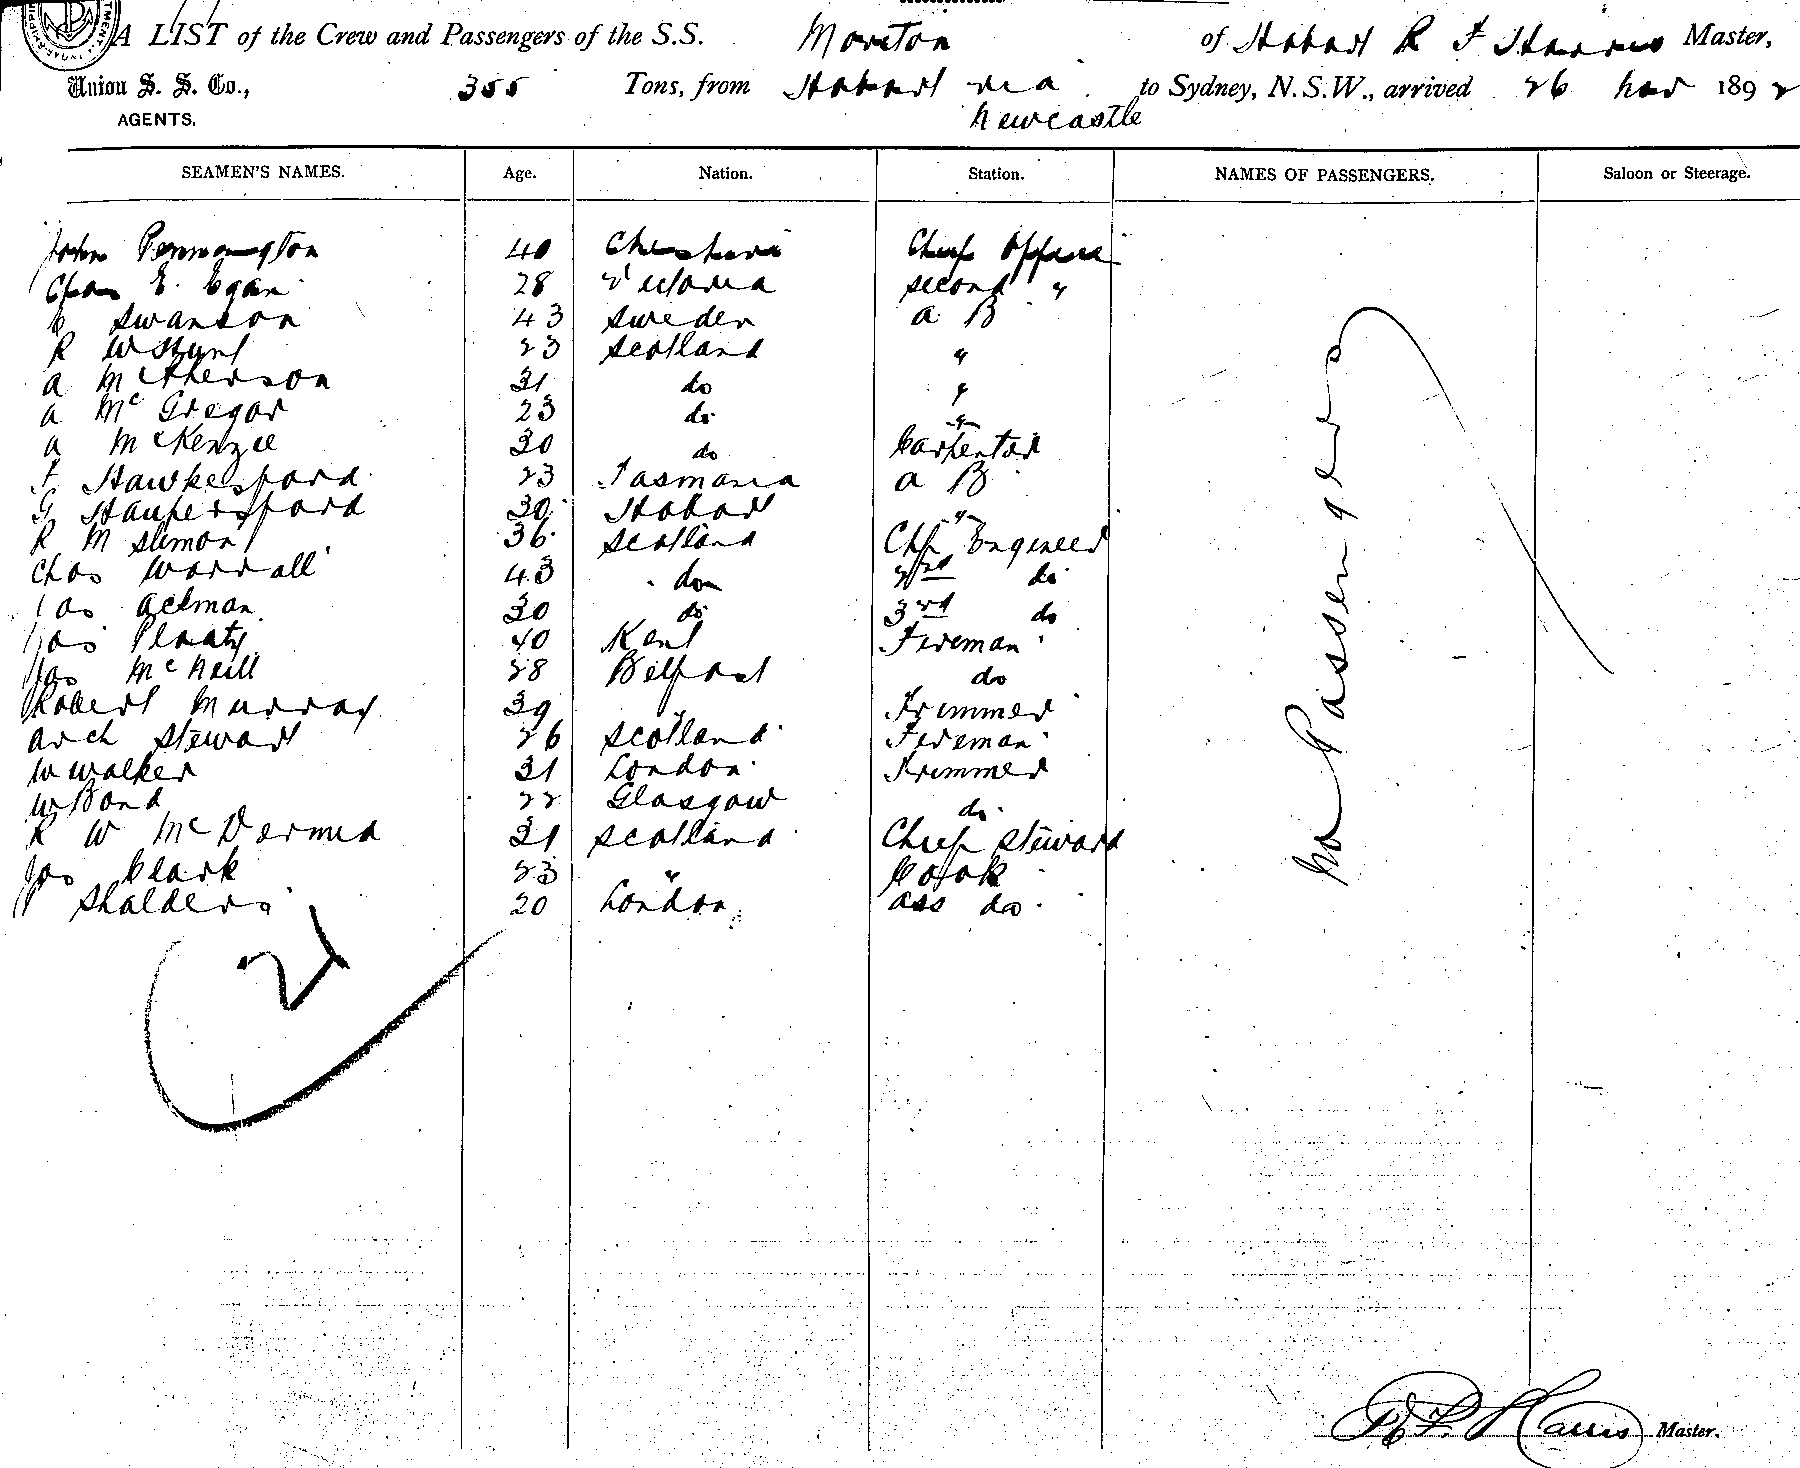 A LIST of the Crew and Passengers of the S.S. Moreton of Hobart R F Harris Master,
Union S. S. Co., 355 Tons, from Hobart via to Sydney, N.S.W., arrived 26 Mar 1892
AGENTS. Newcastle
SEAMEN'S NAMES. Age. Nation. Station. NAMES OF PASSENGERS. Saloon or Steerage.
John Pennington 40 Cheshire Chief Officer
Chas E. Egan 28 Victoria second "
C Swanson 43 Sweden a B
R 23 Scotland "
a McPherson 31 do "
a McGregor 23 do "
a McKenzie 30 do Carpenter
F Hawkesford 23 Tasmania a B
G 30 Hobart "
R M Slimon 36 Scotland Chf Engineer
Chas Worrall 43 do 2nd do
Jas 30 do 3rd do
Jas 40 Kent Fireman
Jas McNeill 28 Belfast do
Robert Murray 39 " Trimmer
Arch Stewart 26 Scotland Fireman
W Walker 31 London Trimmer
W Bond 22 Glasgow do
R W McDermid 31 Scotland Chief Steward
Jas Clark 23 " Cook
P Shalders 20 London ass do
21
No Passengers
R F Harris Master.